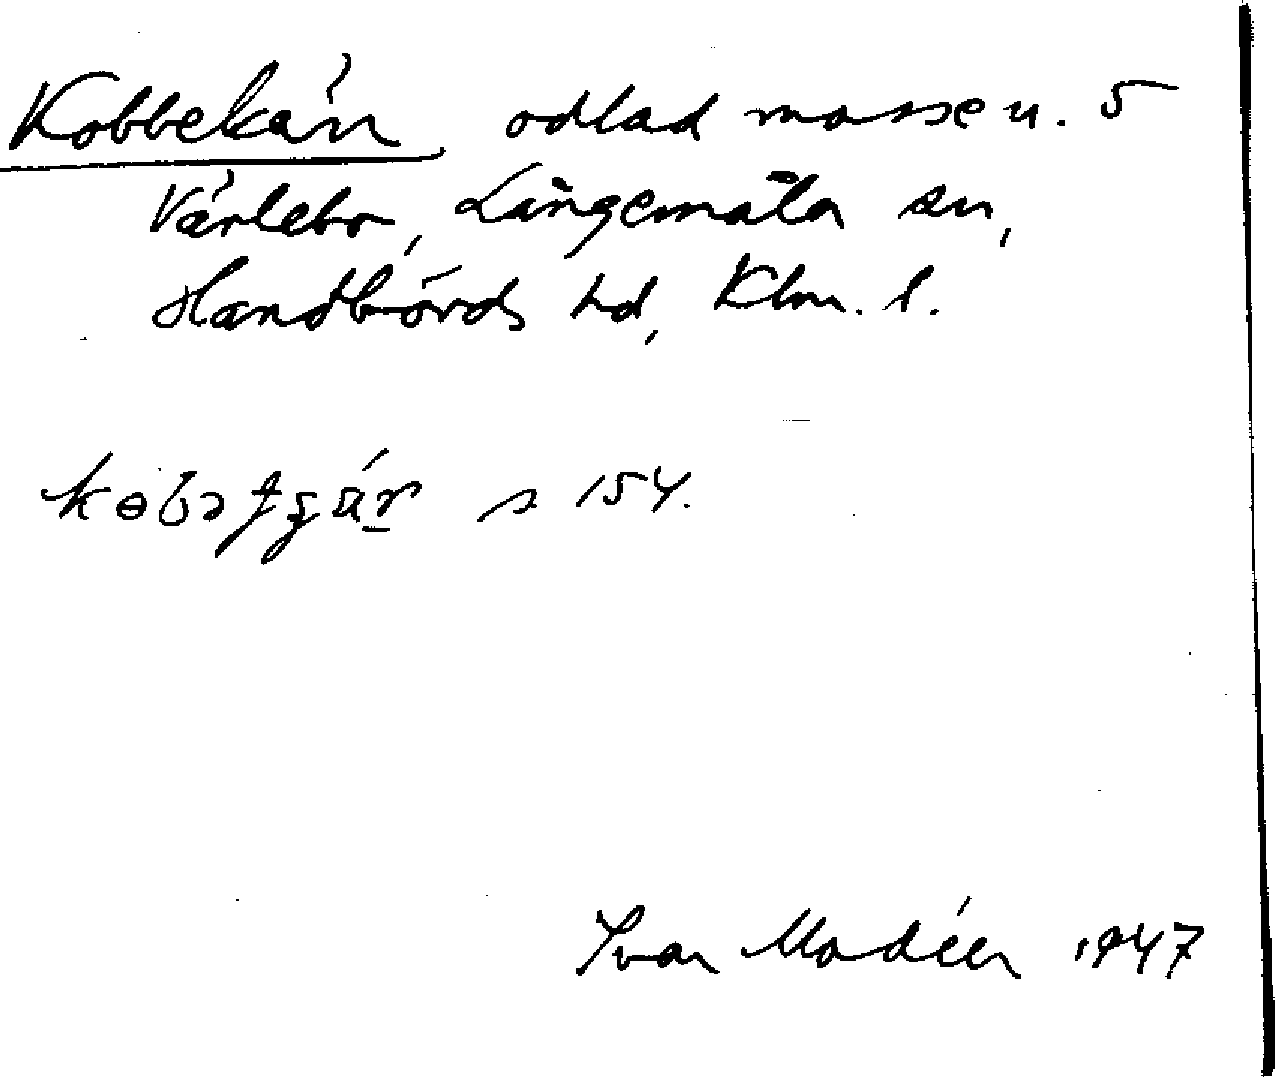 Kobbekärr odlad mosse u. 5
Värlebo, Långemåla sn,
Handbörds hd, Klm. l.
s 154.
Ivar Modéer 1947